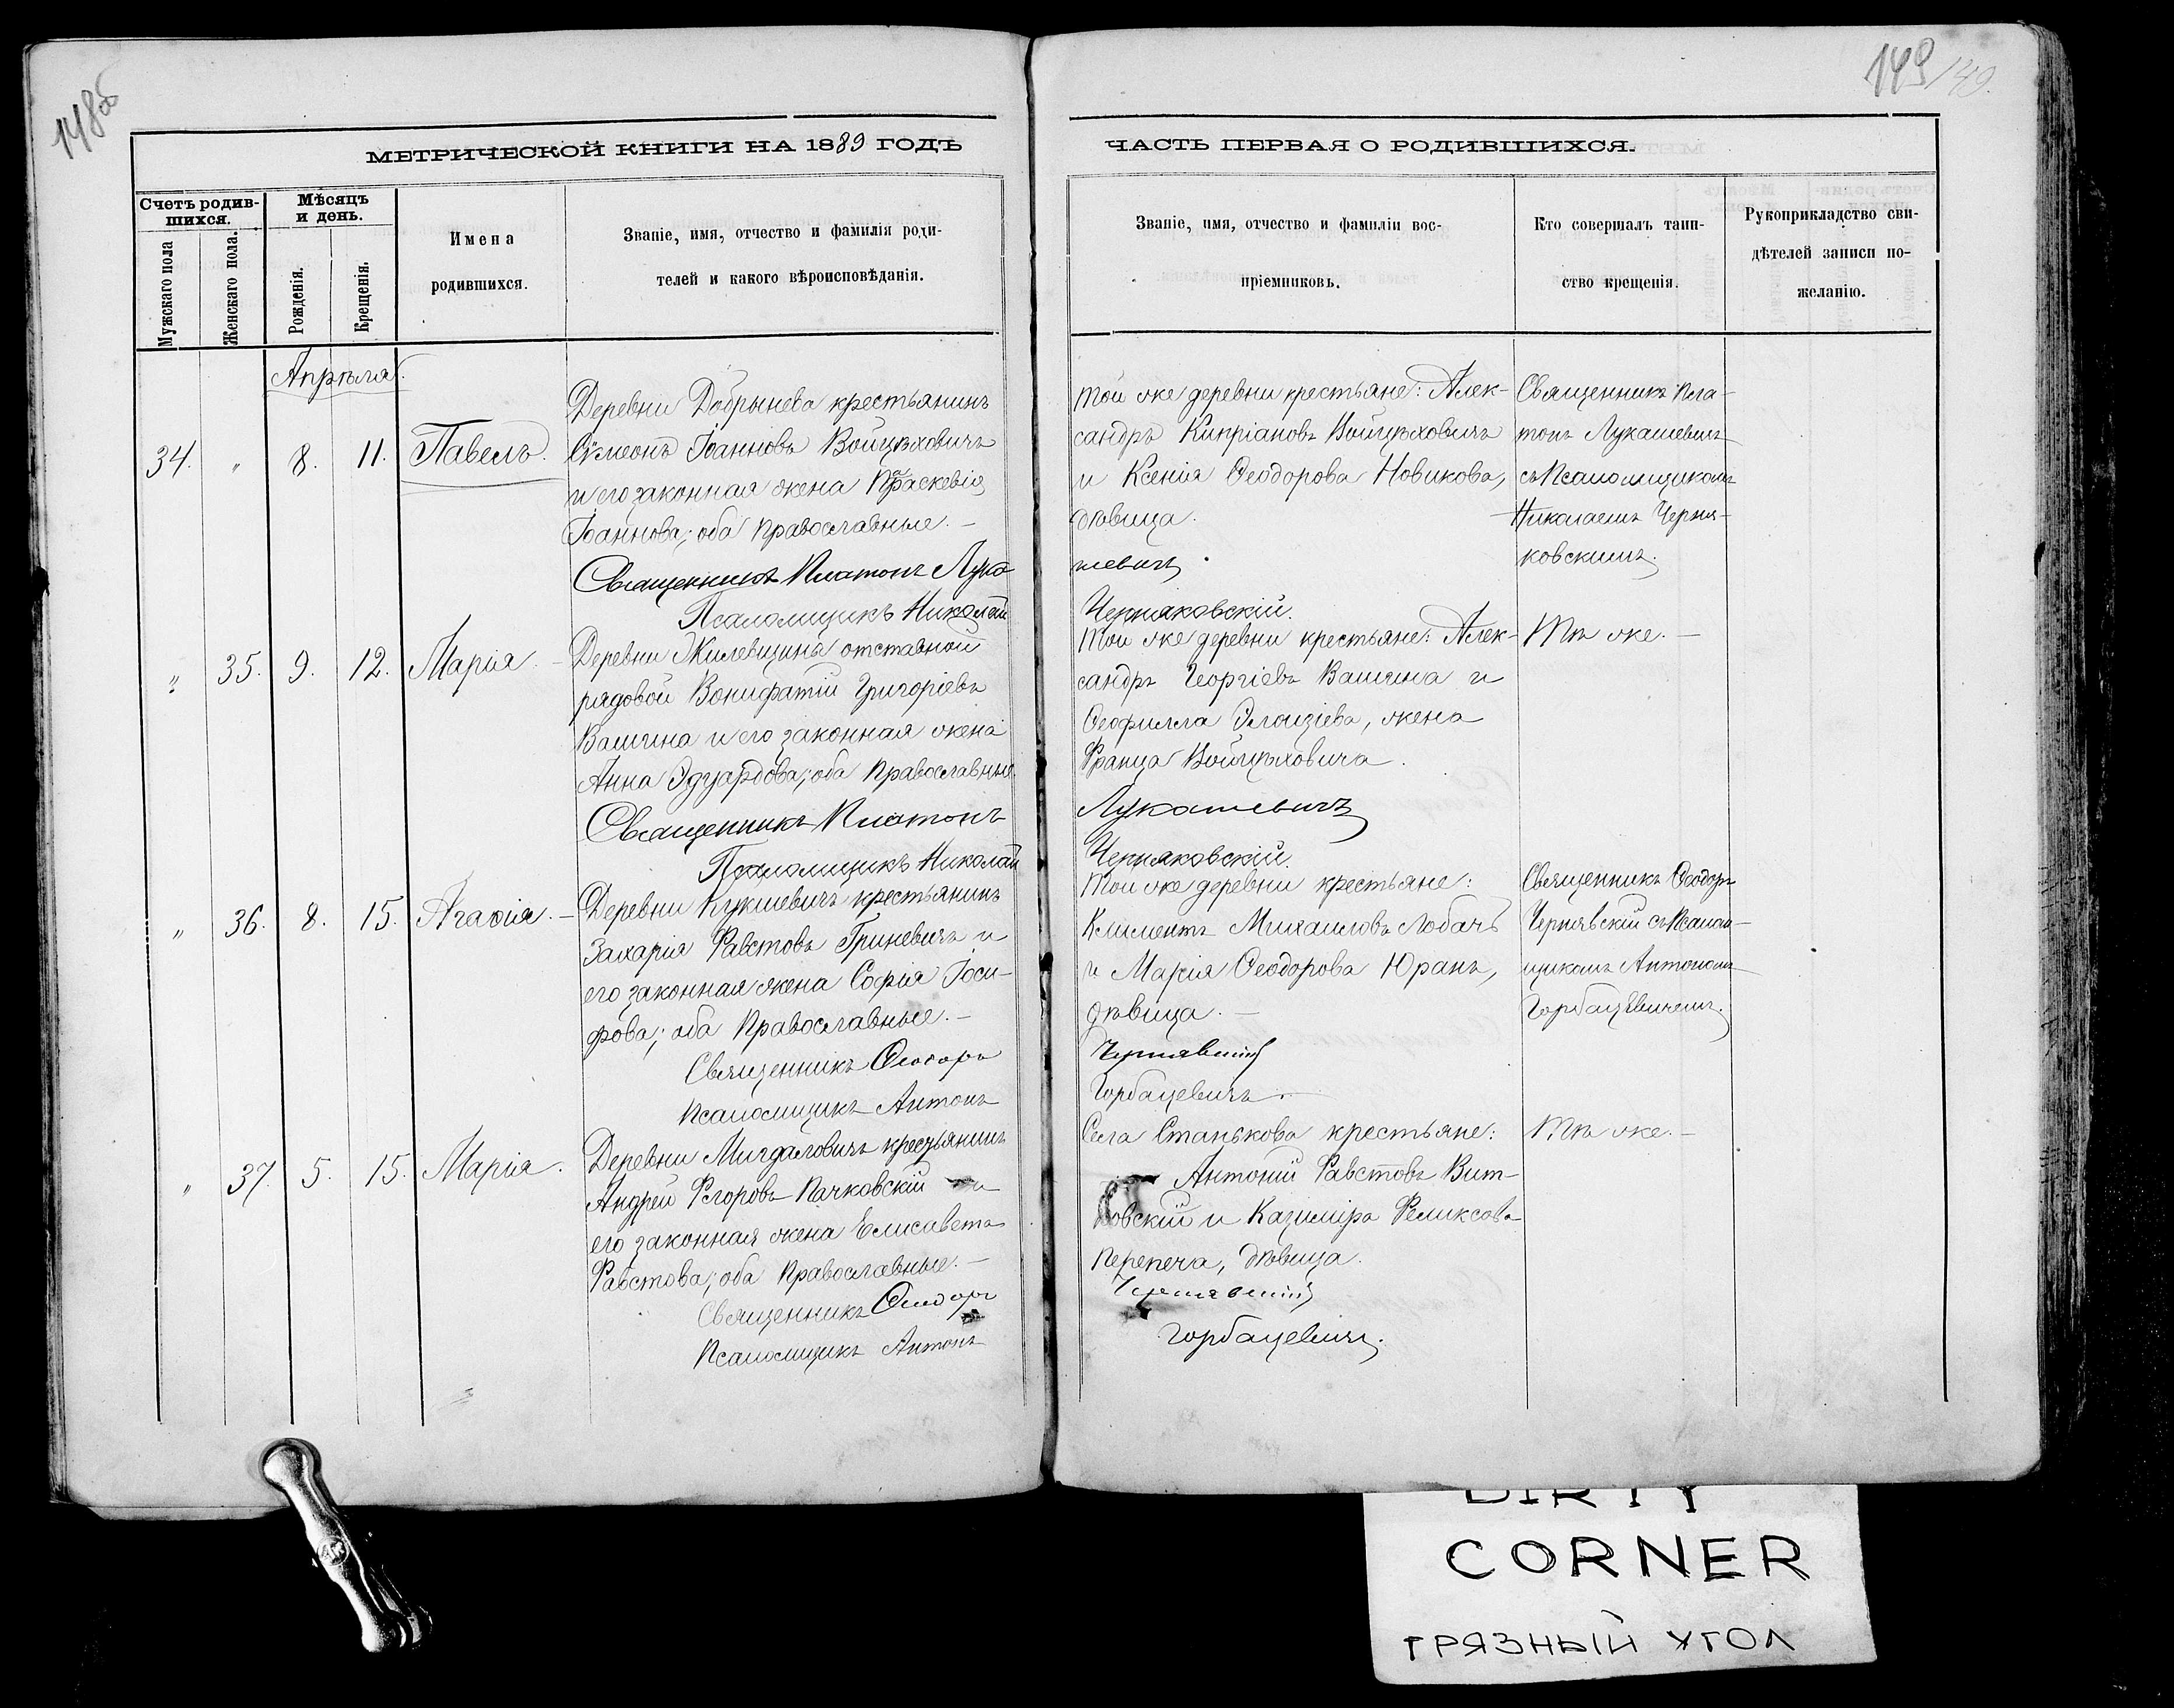 148об
149/149.
МЕТРИЧЕСКОЙ КНИГИ НА 1889 ГОДЪ
ЧАСТЬ ПЕРВАЯ О РОДИВШИХСЯ.
Счетъ родив-
шихся.
Мужскаго пола
Женскаго пола.
Мѣсяцъ
и день.
Рожденія.
Крещенія.
Имена
родившихся.
Званіе, имя, отчество и фамилія роди-
телей и какого вѣроисповѣданія.
Званіе, имя, отчество и фамиліи вос-
пріемниковъ.
Кто совершалъ таин-
ство крещенія.
Рукоприкладство сви-
дѣтелей записи по-
желанію.
Апрѣля.
34. " 8. 11. Павелъ.
Деревни Добрынева крестьянинъ
Сѵмеонъ Іоанновъ Войцѣховичъ
и его законная жена Праскевія
Іоаннова; оба православные. –
Священникъ Платонъ Лука
Псаломщикъ Николай
той же деревни крестьяне: Алек-
сандръ Кипріановъ Войцѣховичъ
и Ксенія Ѳеодорова Новикова,
дѣвица.
шевичъ.
Черняковскій.
Священникъ Пла-
тонъ Лукашевичъ
съ Псаломщикомъ
Николаемъ Черня-
ковскимъ.
" 35. 9. 12. Марія. –
Деревни Жилевщины отставной
рядовой Вонифатій Григорьевъ
Вашина и его законная жена
Анна Эдуардова; оба православные.
Священникъ Платонъ
Псаломщикъ Николай
Той же деревни крестьяне: Алек-
сандръ Георгіевъ Вашина и
Ѳеофилла Элоизіева, жена
Франца Войцѣховича.
Лукашевичъ
Черняковскій.
Тѣ же. –
" 36. 8. 15. Агаѳія. –
Деревни Кукшевичъ крестьянинъ
Захарія Фавстовъ Гриневичъ и
его законная жена Софія Іоси-
фова; оба Православные. –
Священникъ Ѳеодоръ
Псаломщикъ Антонъ
Той же деревни крестьяне:
Климентъ Михаиловъ Лобачъ
и Марія Ѳеодорова Юранъ,
дѣвица. –
Чернявскій
Горбацевичъ.
Священникъ Ѳеодоръ
Чернявскій съ Псалом-
щикомъ Антономъ
Горбацевичемъ.
" 37. 5. 15. Марія.
Деревни Мигдаловичъ крестьянинъ
Андрей Егоровъ Пачковскій и
его законная жена Елисавета
Фавстова; оба Православные. –
Священникъ Ѳеодоръ
Псаломщикъ Антонъ
Села Станькова крестьяне:
Антоній Фавстовъ Вит-
ковскій и Казиміра Феликсова
Перепеча, дѣвица.
Чернявскій
Горбацевичъ.
Тѣ же. –
DIRTY
CORNER
ГРЯЗНЫЙ УГОЛ